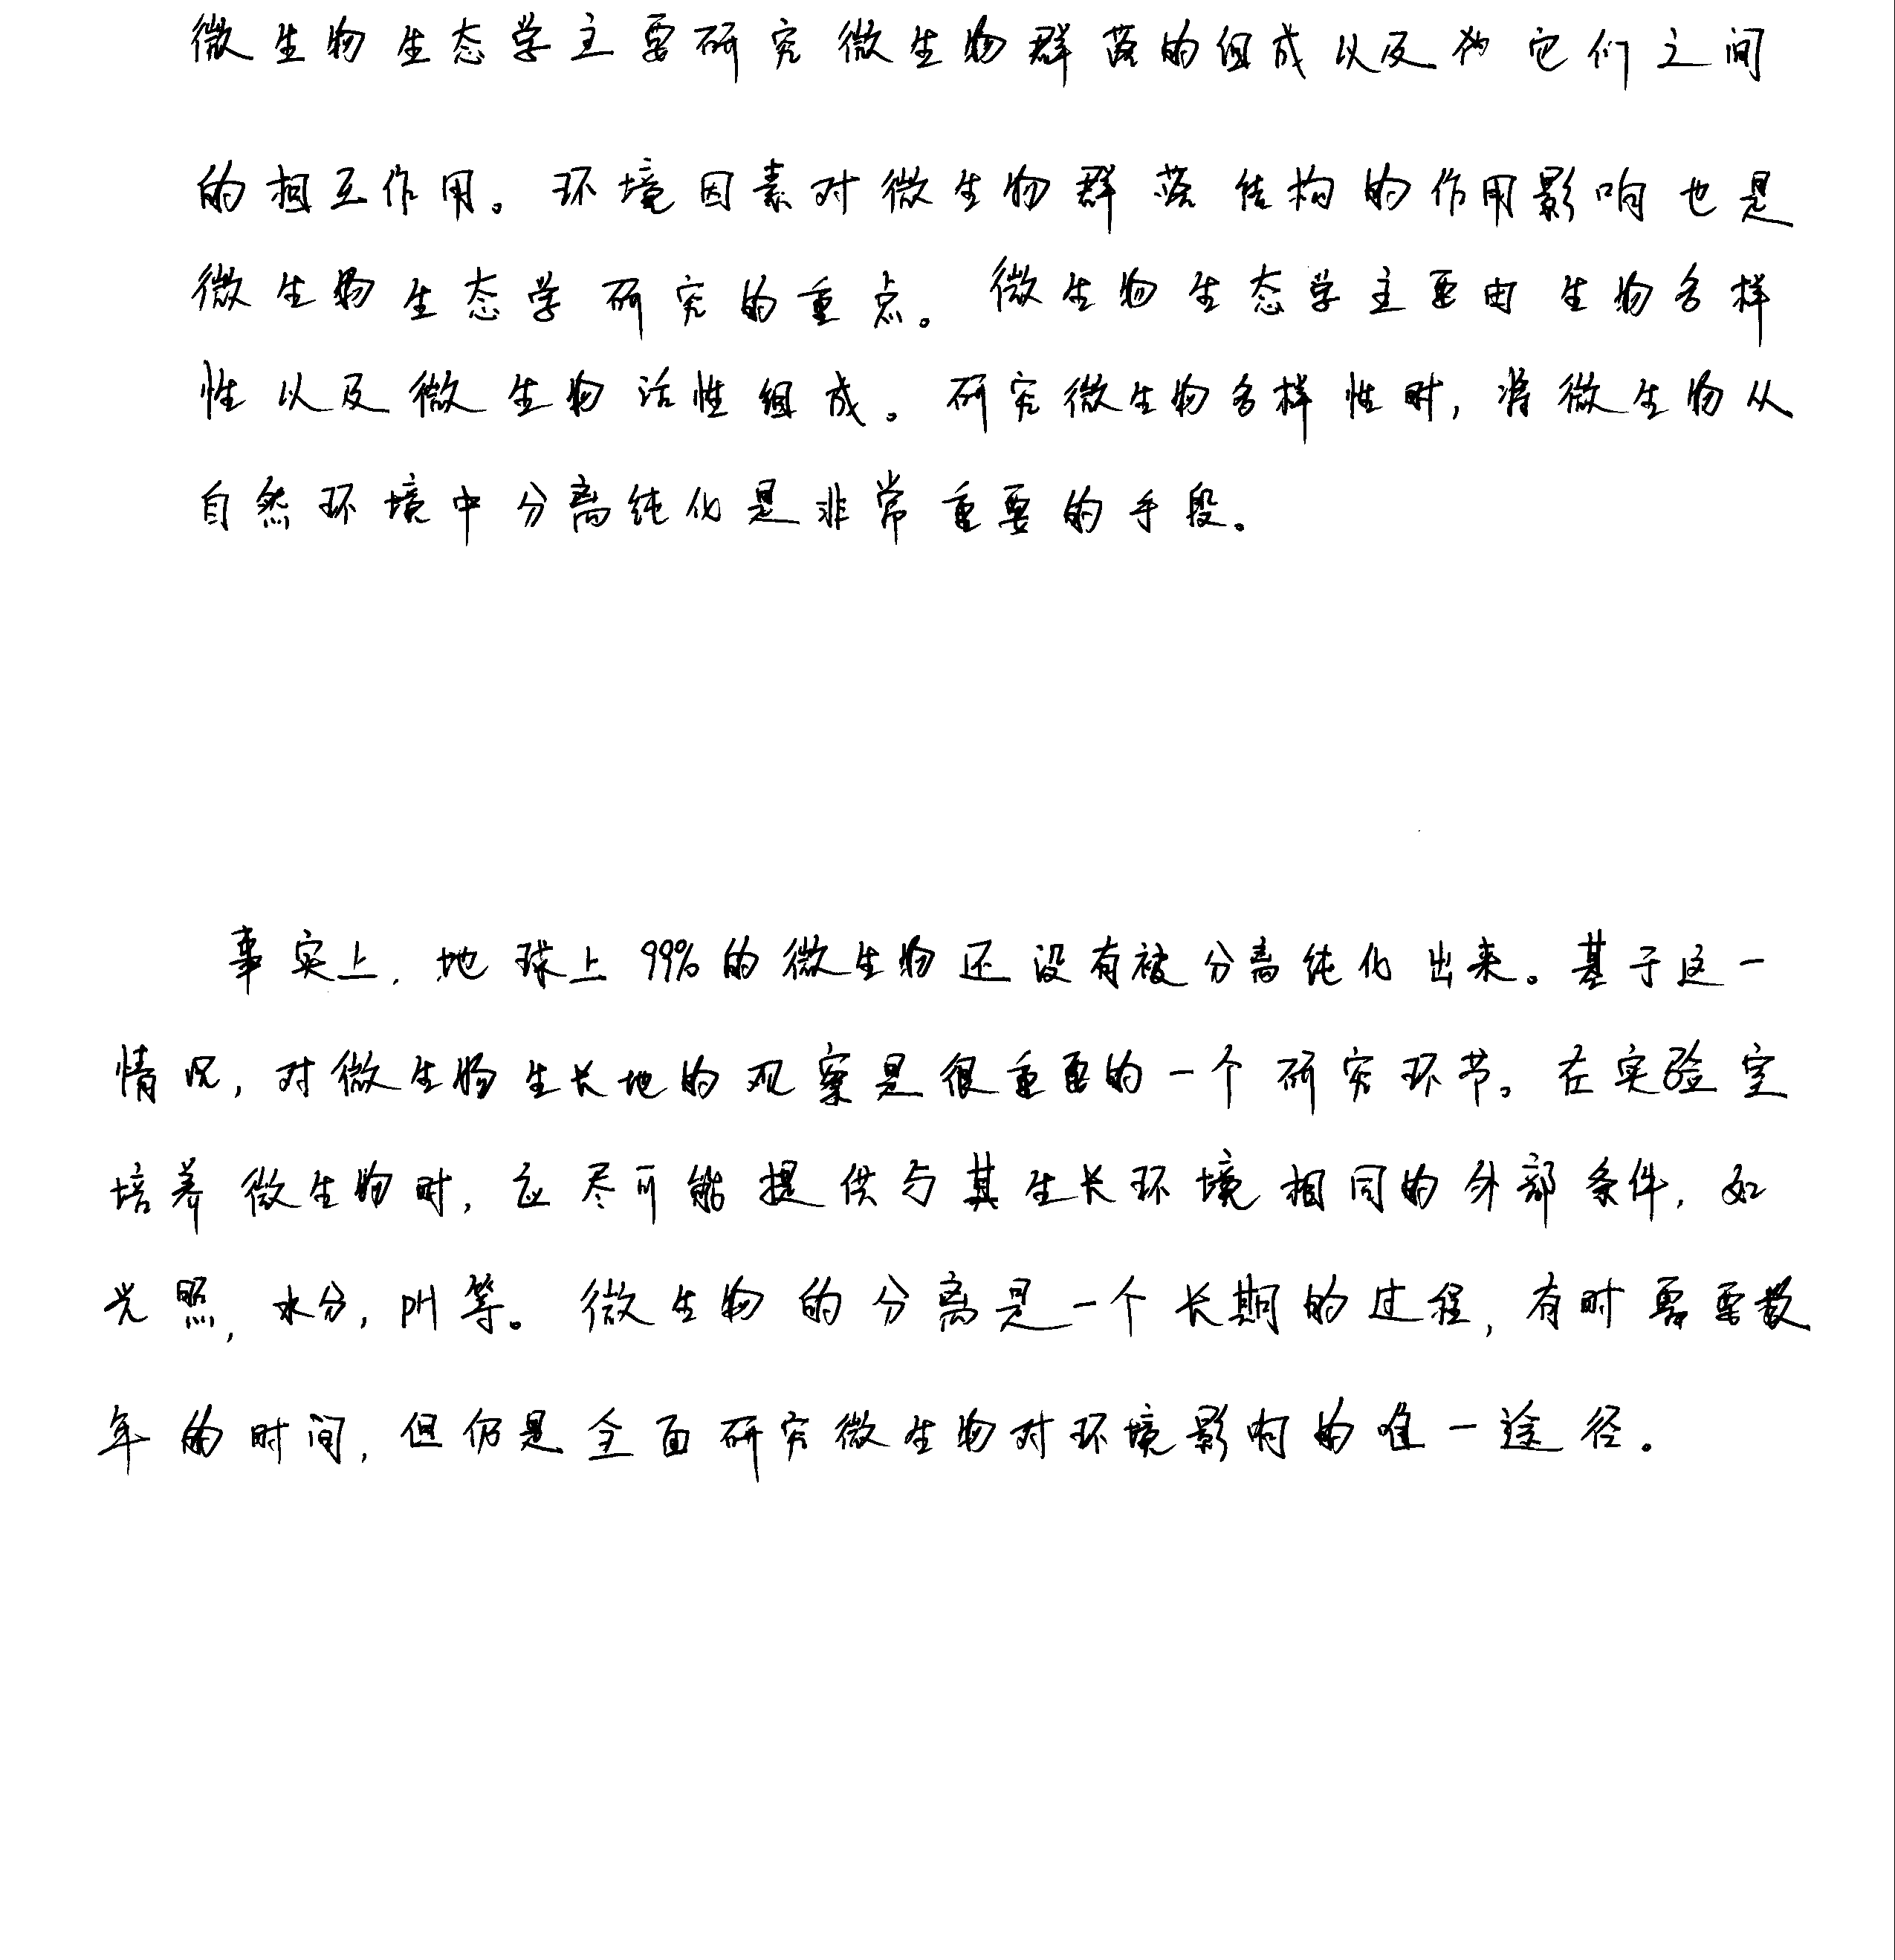 微生物生态学主要研究微生物群落的组成以及它们之间
的相互作用。环境因素对微生物群落结构的作用影响也是
微生物生态学研究的重点。微生物生态学主要由生物多样
性以及微生物活性组成。研究微生物多样性时,将微生物从
自然环境中分离纯化是非常重要的手段。
事实上,地球上99%的微生物还没有被分离纯化出来。基于这一
情况,对微生物生长地的观察是很重要的一个研究环节。在实验室
培养微生物时,应尽可能提供与其生长环境相同的外部条件,如
光照,水分,pH等。微生物的分离是一个长期的过程,有时需要数
年的时间,但仍是全面研究微生物对环境影响的唯一途径。